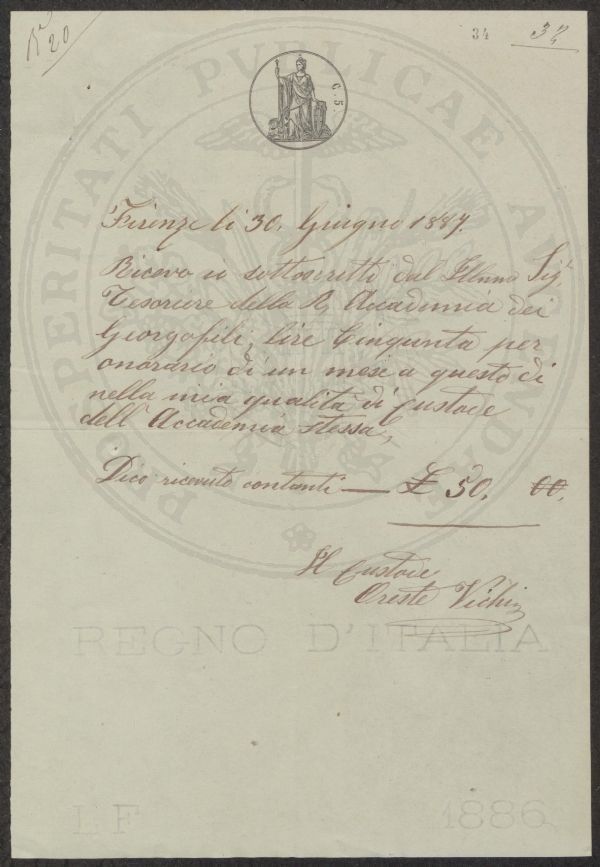 No 20
34
34
C. 5.
PROSPERITATI PVBLICAE AVGENDAE
Firenze li 30. Giugno 1887.
Ricevo io sottoscritto dal Illmo Sigr
Tesoriere della R. Accademia dei
Georgofili, lire Cinquanta per
onorario di un mese a questo dì
nella mia qualità di Custode
dell' Accademia stessa,
Dico ricevute contanti — £ 50. 00.
Il Custode
Oreste Vichi
REGNO D'ITALIA
L F 1886